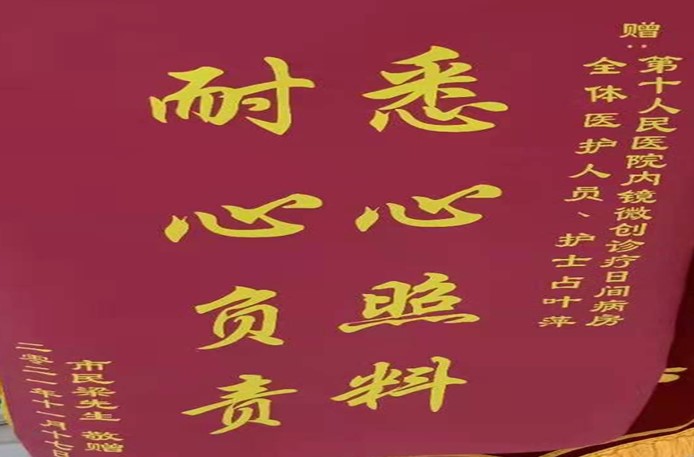 赠:
第十人民医院内镜微创诊疗日间病房
全体医护人员、护士占叶萍
悉心照料
耐心负责
市民梁先生 敬赠
二零二一年十一月十七日